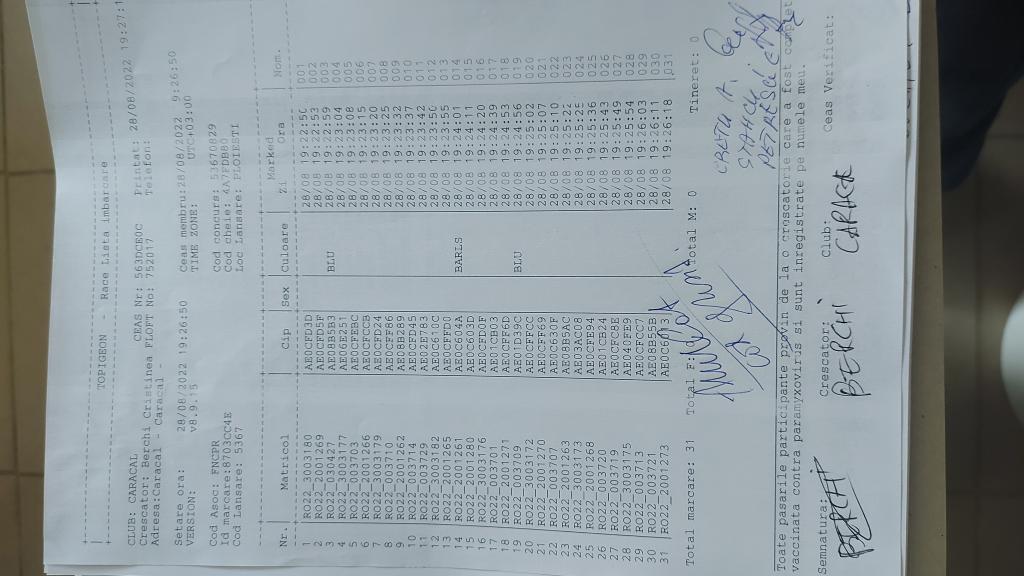 TOPIGEON - Race Lista imbarcare
CLUB: CARACAL CEAS Nr: 563DCE0C Printat: 28/08/2022 19:27:1
Crescator: Berchi Cristinea FLOFT No: 752017 Telefon:
Adresa:Caracal - Caracal -
Setare ora: 28/08/2022 19:26:50 Ceas membru:28/08/2022 9:26:50
VERSION: v8.9.15 TIME ZONE: UTC+03:00
Cod Asoc: FNCPR Cod concurs: 53670829
Id marcare:8703CC4E Cod cheie: 4A7FDB80
Cod Lansare: 5367 Loc Lansare: PLOIESTI
Marked
Nr. Matricol Cip Sex Culoare Zi Ora Nom.
1 RO22_3003180 AE0CFD3D 28/08 19:22:50 001
2 RO22_2001269 AE0CFD5F 28/08 19:22:53 002
3 RO22_030427 AE08B5B3 BLU 28/08 19:22:59 003
4 RO22_3003177 AE06E251 28/08 19:23:04 004
5 RO22_003703 AE0CFEBC 28/08 19:23:08 005
6 RO22_2001266 AE0CFCCB 28/08 19:23:15 006
7 RO22_3003179 AE0CFD24 28/08 19:23:20 007
8 RO22_003710 AE0CFF86 28/08 19:23:25 008
9 RO22_2001262 AE08B289 28/08 19:23:32 009
10 RO22_003714 AE0CFD45 28/08 19:23:37 010
11 RO22_003729 AE02E783 28/08 19:23:42 011
12 RO22_3003182 AE0C610C 28/08 19:23:50 012
13 RO22_2001265 AE0CFFDC 28/08 19:23:55 013
14 RO22_2001261 AE0C604A BARLS 28/08 19:24:01 014
15 RO22_2001280 AE0C603D 28/08 19:24:11 015
16 RO22_3003176 AE0CFD0F 28/08 19:24:20 016
17 RO22_003701 AE01CB03 28/08 19:24:39 017
18 RO22_2001271 AE0CFF6D 28/08 19:24:43 018
19 RO22_003709 AE01D39C BLU 28/08 19:24:56 019
20 RO22_3003172 AE0CFFCC 28/08 19:25:02 020
21 RO22_2001270 AE0CFF69 28/08 19:25:07 021
22 RO22_003707 AE0C630F 28/08 19:25:10 022
23 RO22_2001263 AE08B5AC 28/08 19:25:22 023
24 RO22_3003173 AE03AC08 28/08 19:25:25 024
25 RO22_2001268 AE0CFE94 28/08 19:25:36 025
26 28/08 19:25:43 026
27 RO22_003719 28/08 19:25:49 027
28 RO22_3003175 AE040FE9 28/08 19:25:54 028
29 RO22_003713 AE0CFCC7 28/08 19:26:03 029
30 RO22_003721 AE08B55B 28/08 19:26:11 030
31 RO22_2001273 28/08 19:26:18 031
Total marcare: 31 Total F: Total M: 0 Tineret: 0
Toate pasarile participante provin de la o crescatorie care a fost complet
vaccinata contra paramyxovirus si sunt inregistrate pe numele meu.
Semnatura: Crescator: Club: Ceas Verificat:
BERCHI BERCHI CARACAL